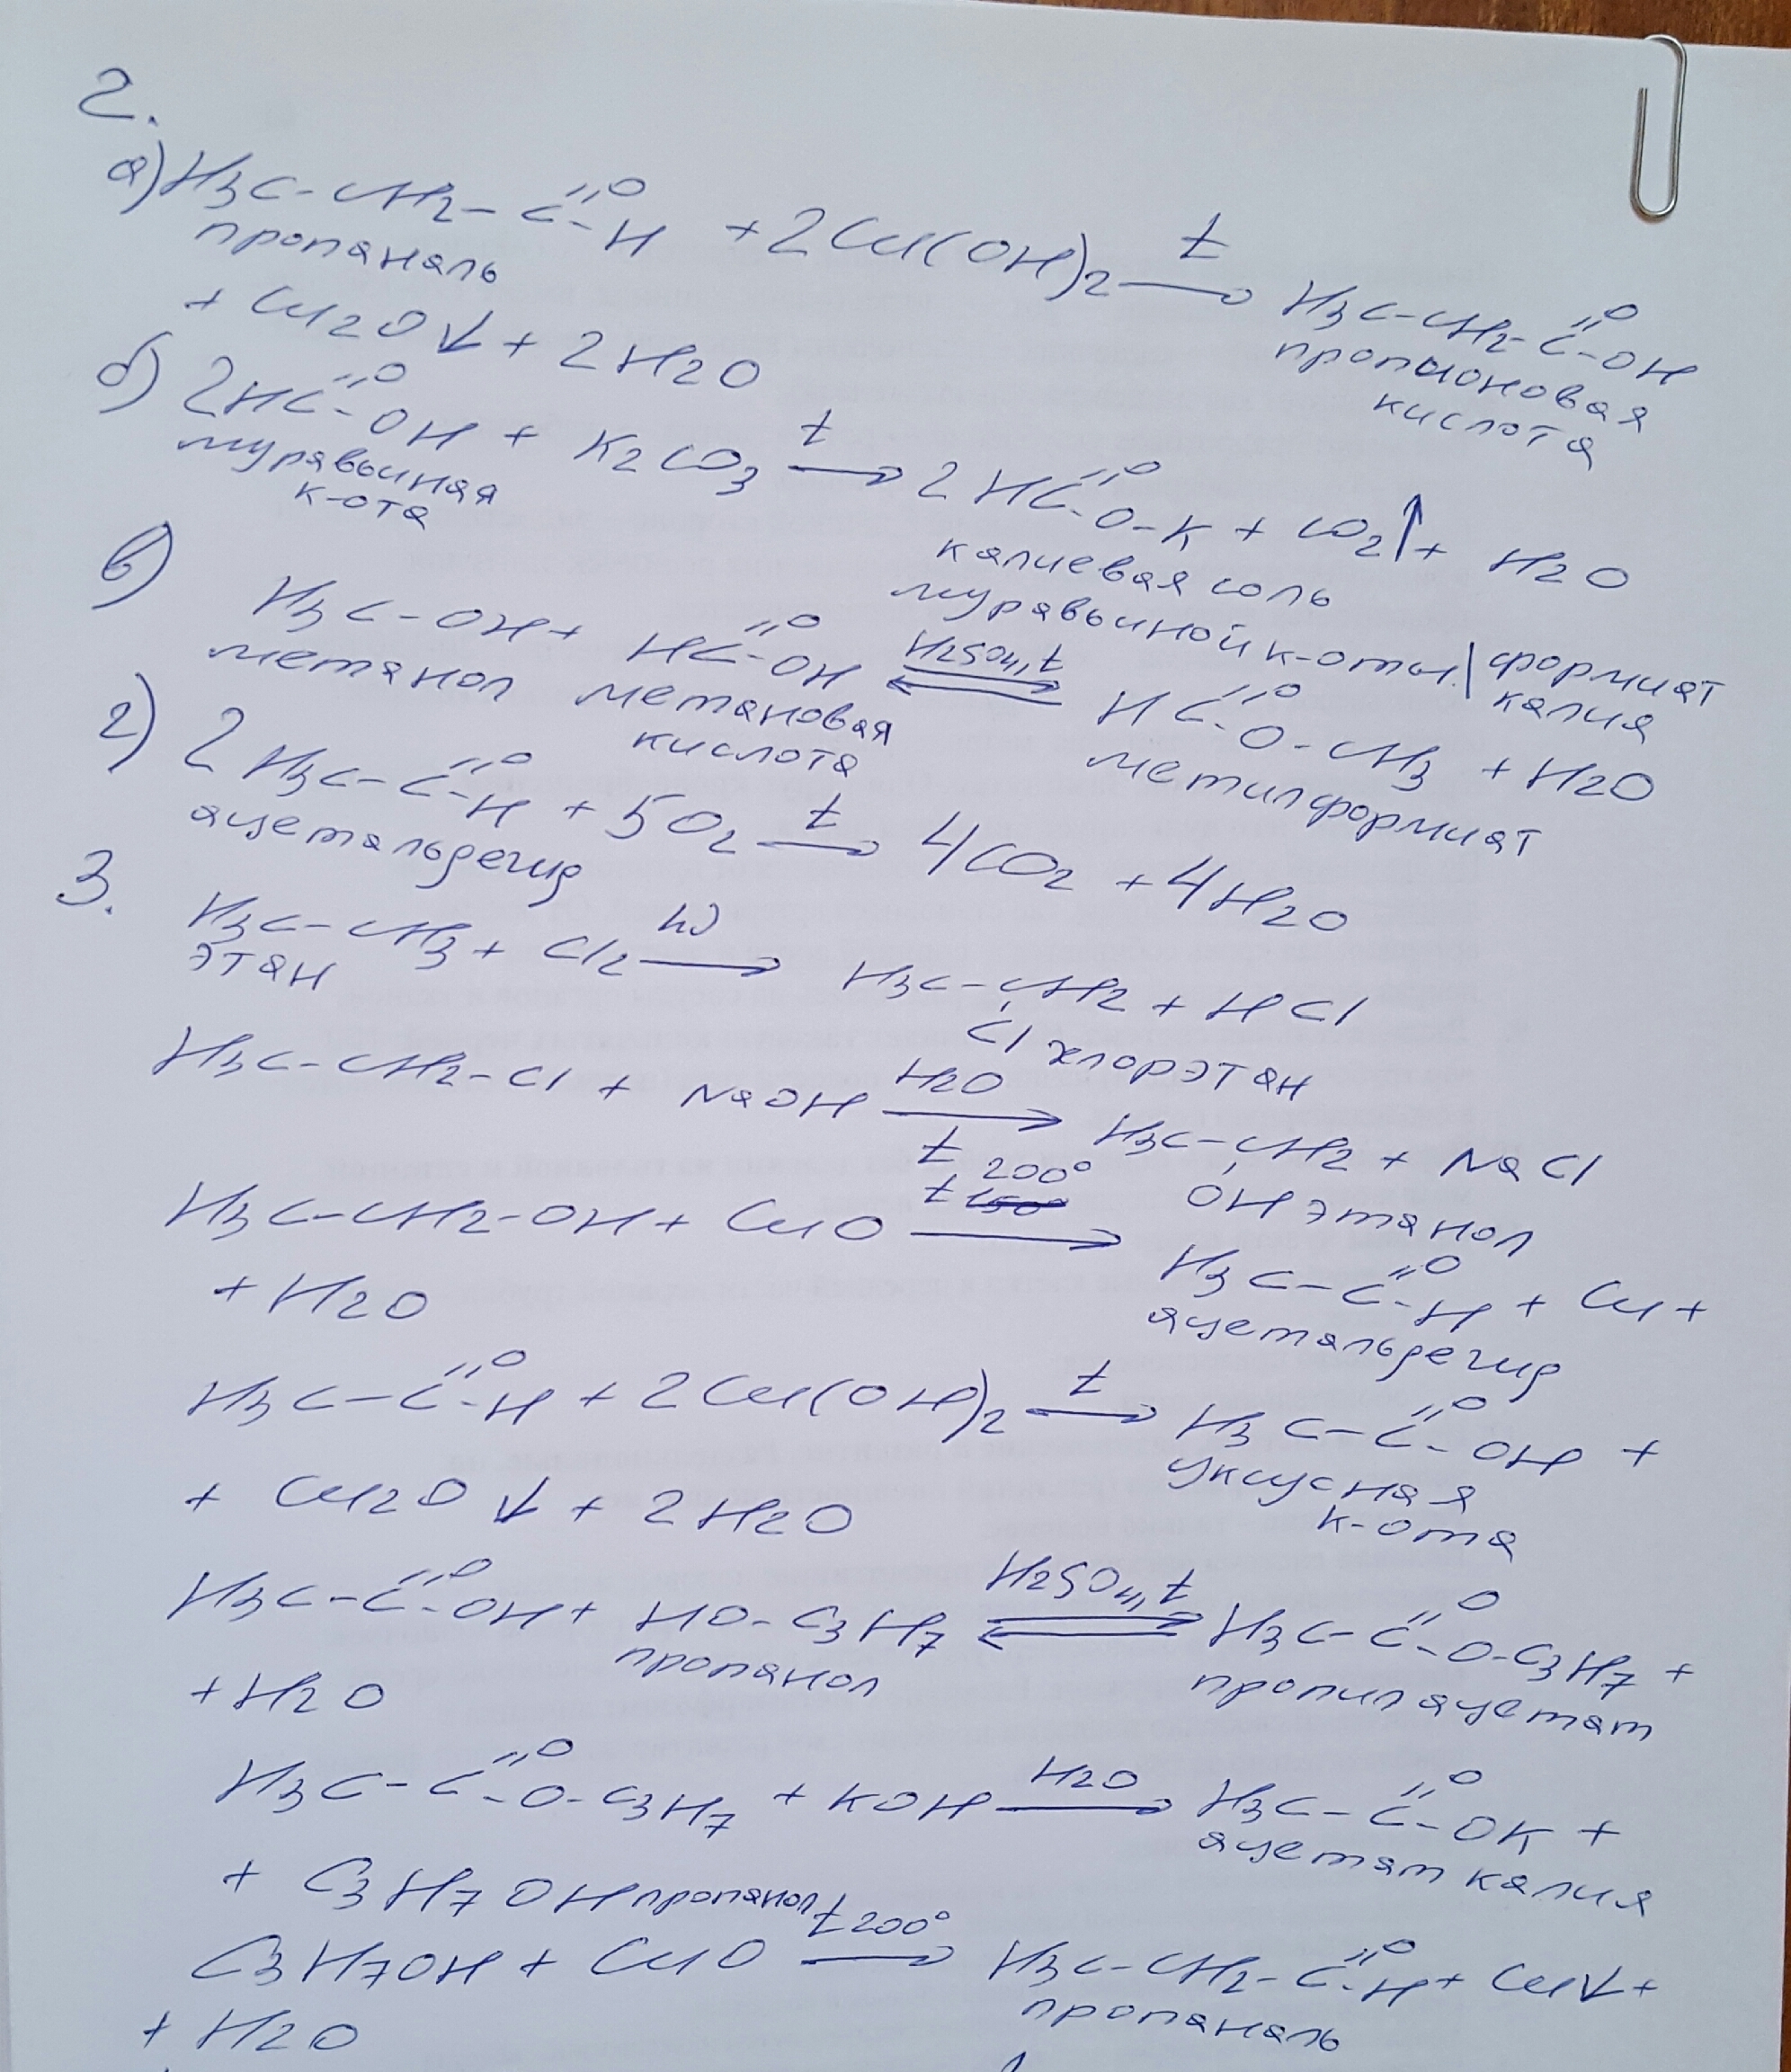 2.
а) H3C-CH2-C=O-H + 2Cu(OH)2 →t H3C-CH2-C=O-OH
пропаналь пропионовая кислота
+ Cu2O↓ + 2H2O
б) 2HC=O-OH + K2CO3 →t 2HC=O-O-K + CO2↑ + H2O
муравьиная к-ота калиевая соль муравьиной к-оты | формиат калия
в) H3C-OH + HC=O-OH ⇄ H2SO4, t HC=O-O-CH3 + H2O
метанол метановая кислота метилформиат
г) 2H3C-C=O-H + 5O2 →t 4CO2 + 4H2O
ацетальдегид
3.
H3C-CH3 + Cl2 →hν H3C-CH2 + HCl
этан Cl хлорэтан
H3C-CH2-Cl + NaOH →H2O t H3C-CH2 + NaCl
OH этанол
H3C-CH2-OH + CuO →t 200° H3C-C=O-H + Cu +
ацетальдегид
+ H2O
H3C-C=O-H + 2Cu(OH)2 →t H3C-C=O-OH +
уксусная к-ота
+ Cu2O↓ + 2H2O
H3C-C=O-OH + HO-C3H7 ⇄ H2SO4, t H3C-C=O-O-C3H7 +
пропанол пропилацетат
+ H2O
H3C-C=O-O-C3H7 + KOH →H2O H3C-C=O-OK +
ацетат калия
+ C3H7OH пропанол
C3H7OH + CuO →t 200° H3C-CH2-C=O-H + Cu↓ +
пропаналь
+ H2O